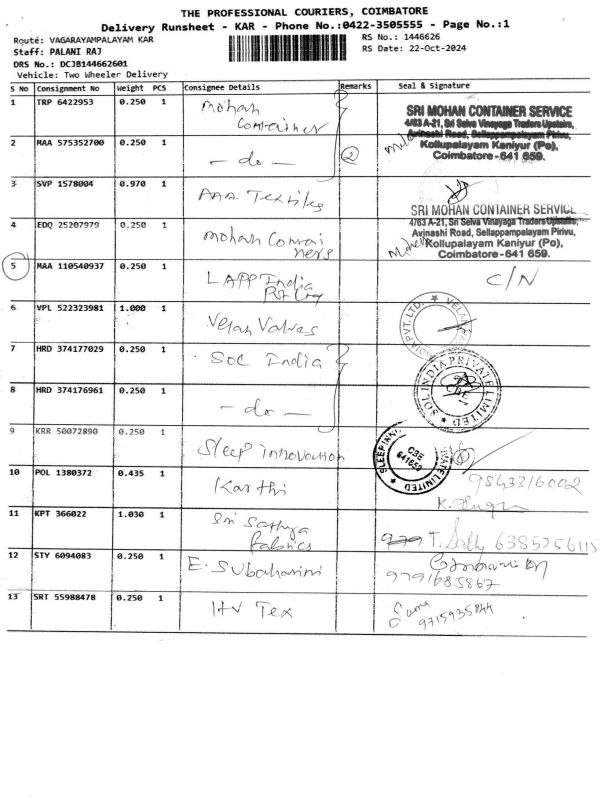 THE PROFESSIONAL COURIERS, COIMBATORE
Delivery Runsheet - KAR - Phone No.:0422-3505555 - Page No.:1
Route: VAGARAYAMPALAYAM KAR
RS No.: 1446626
Staff: PALANI RAJ
RS Date: 22-Oct-2024
DRS No.: DCJB144662601
Vehicle: Two Wheeler Delivery
S No Consignment No Weight PCS Consignee Details Remarks Seal & Signature
1 TRP 6422953 0.250 1 Mohan
Container
SRI MOHAN CONTAINER SERVICE
4/63 A-21, Sri Selva Vinayaga Traders Upstairs,
Avinashi Road, Sellappampalayam Pirivu,
Kollupalayam Kaniyur (Po),
Coimbatore-641 659.
2 MAA 575352700 0.250 1 - do - 2
3 SVP 1578004 0.970 1 AAA Textiles
SRI MOHAN CONTAINER SERVICE
4/63 A-21, Sri Selva Vinayaga Traders Upstairs,
Avinashi Road, Sellappampalayam Pirivu,
Kollupalayam Kaniyur (Po),
Coimbatore-641 659.
4 EDQ 25207979 0.250 1 Mohan Contai
ners
5 MAA 110540937 0.250 1 LAPP India C/N
6 VPL 522323981 1.000 1 Velan Valves
7 HRD 374177029 0.250 1 SOL India
SOL INDIA PRIVATE LIMITED
CBE
8 HRD 374176961 0.250 1 - do -
9 KRR 50072890 0.250 1 Sleep innovation
CBE
641659
10 POL 1380372 0.435 1 Karthi 9843316002
11 KPT 366022 1.030 1 Sri Sathya
fabrics
12 STY 6094083 0.250 1 E. Subaharini
9791685867
13 SRT 55988478 0.250 1 HV Tex